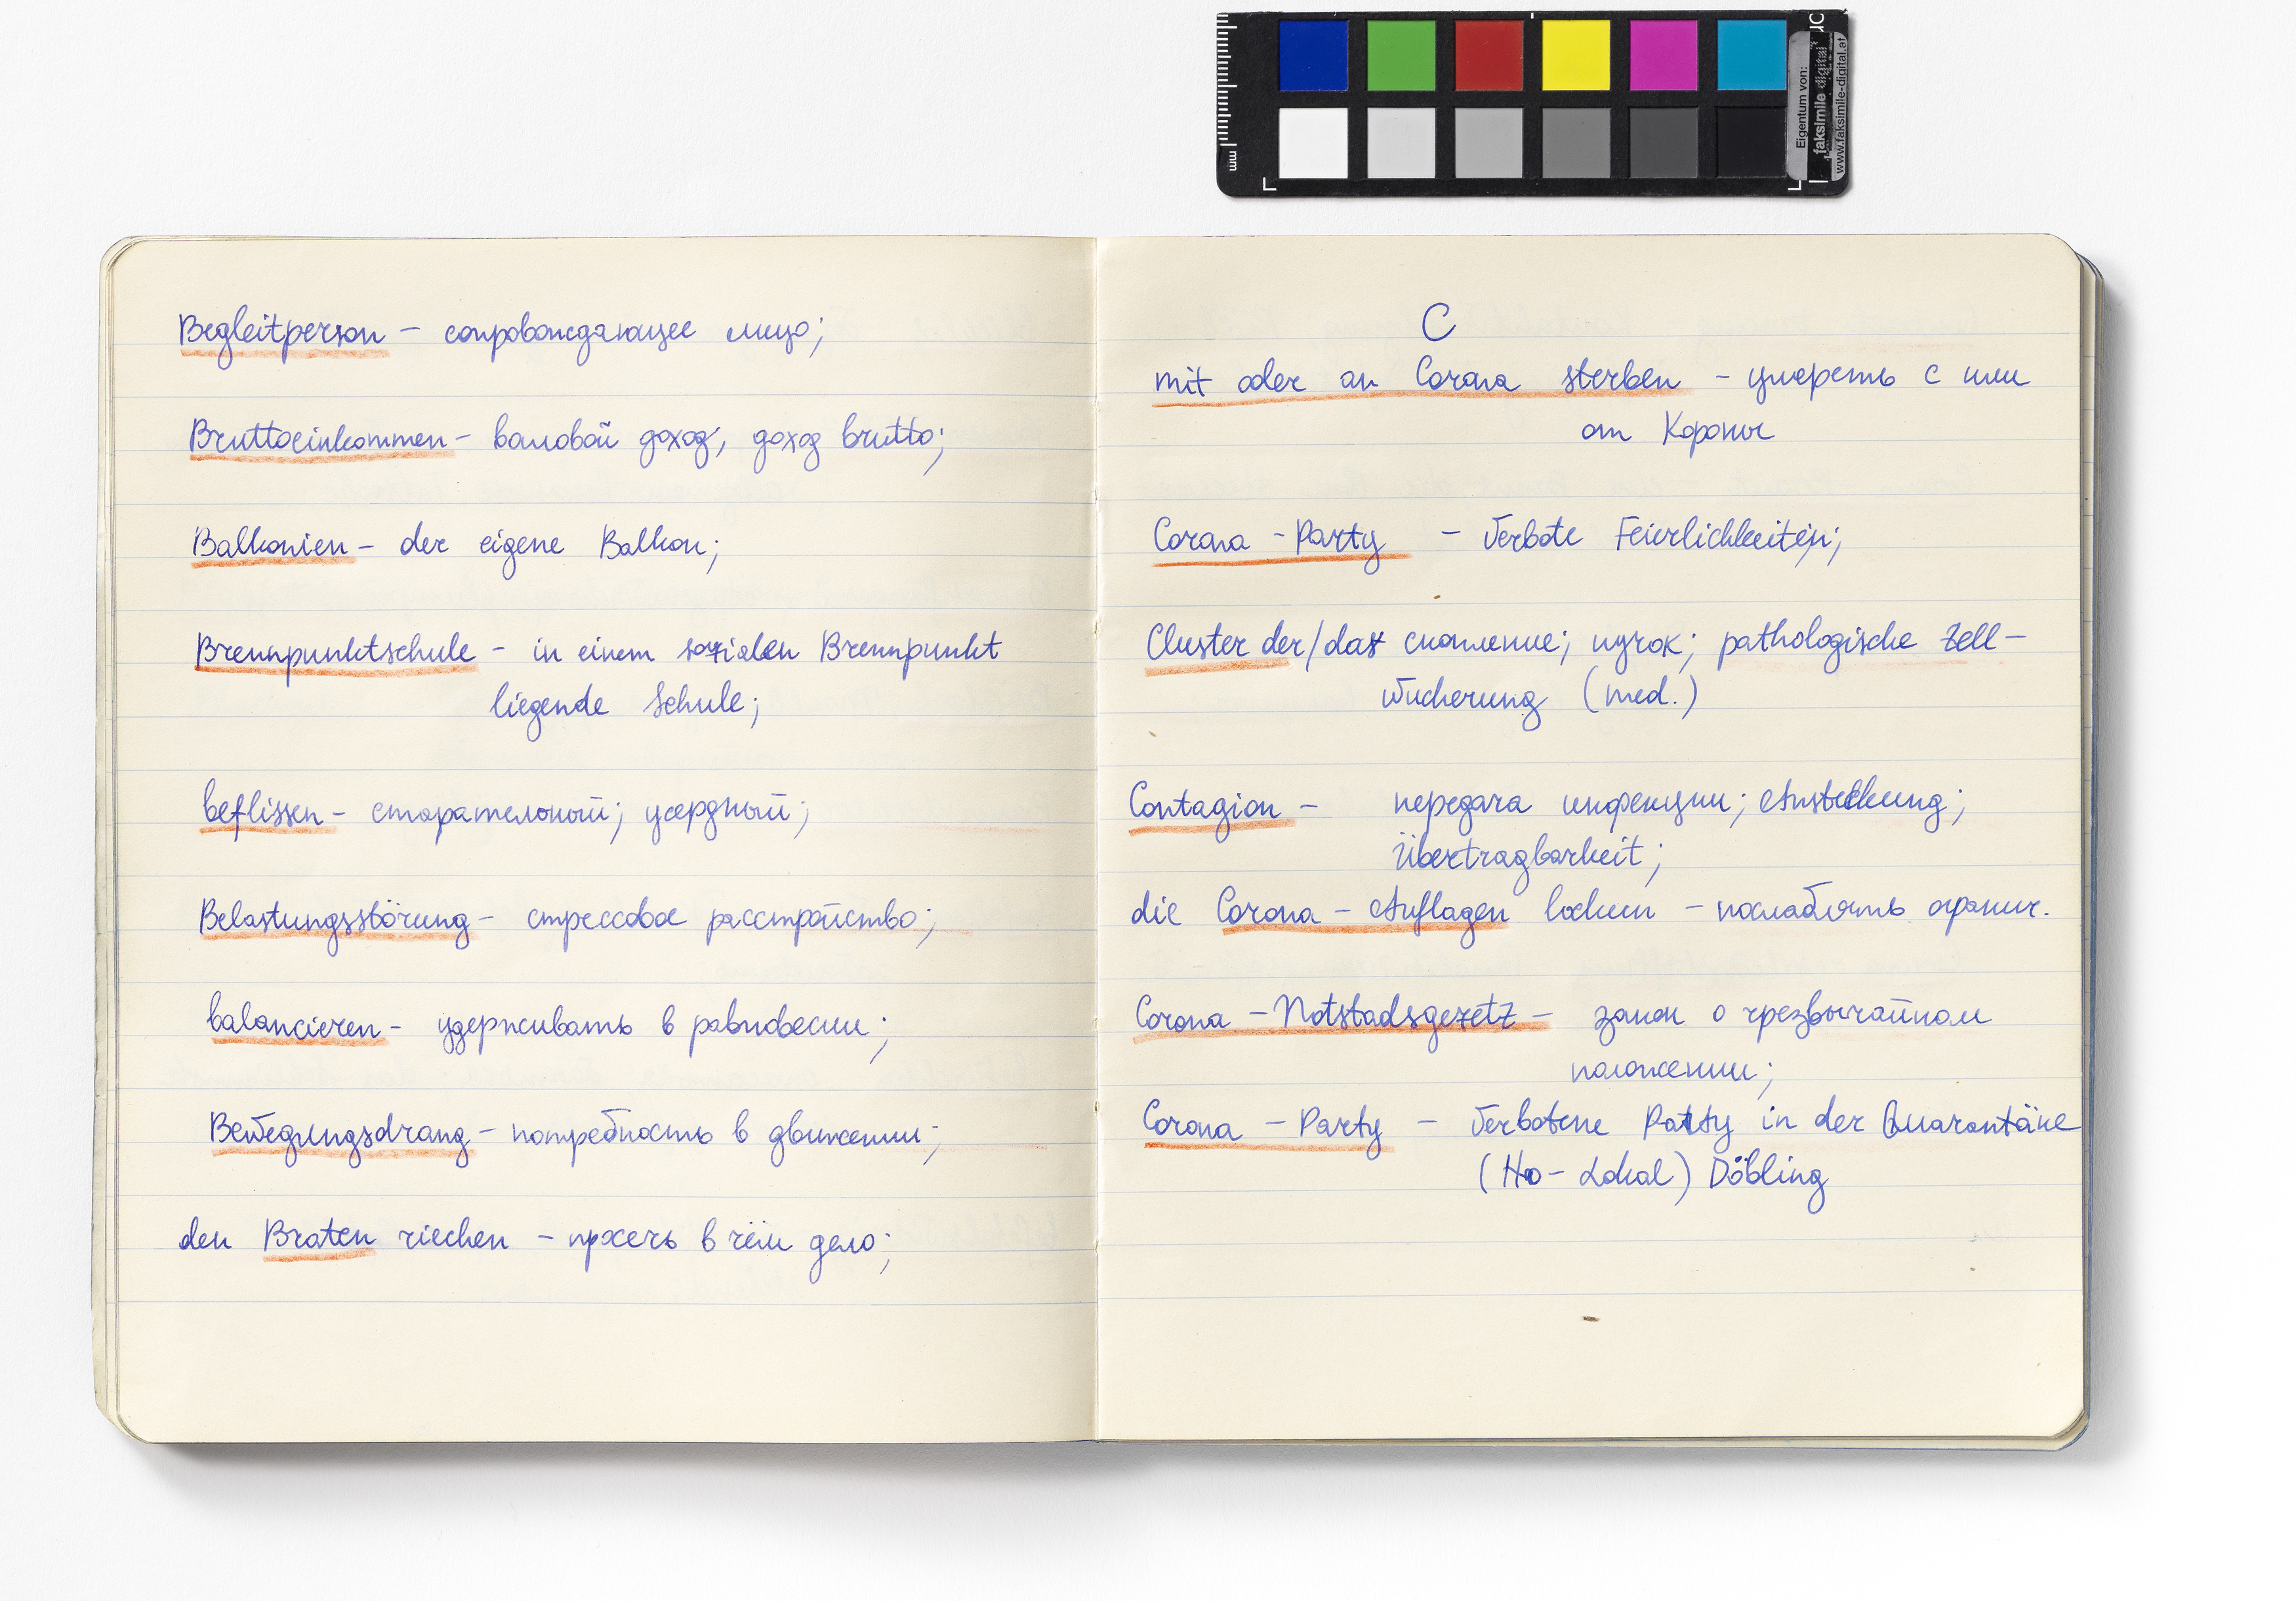 Begleitperson – сопровождающее лицо;
Bruttoeinkommen – валовой доход, доход brutto;
Balkonien – der eigene Balkon;
Brennpunktschule – in einem sozialen Brennpunkt
liegende Schule;
beflissen – старательный; усердный;
Belastungsstörung – стрессовое расстройство;
balancieren – удерживать в равновесии;
Bewegungsdrang – потребность в движении;
den Braten riechen – в чём дело;
C
mit oder an Corona sterben – умереть с или
от Короны
Corona - Party – Verbote Feierlichkeiten;
Cluster der/das скопление; пучок; pathologische Zell-
wucherung (med.)
Contagion – передача инфекции; Ansteckung;
Übertragbarkeit;
die Corona - Auflagen lockern – послаблять огранич.
Corona - Notstadsgesetz – закон о чрезвычайном
положении;
Corona - Party – Verbotene Party in der Quarantäne
Lokal) Döbling
mm
Eigentum von:
faksimile digital
www.faksimile-digital.at